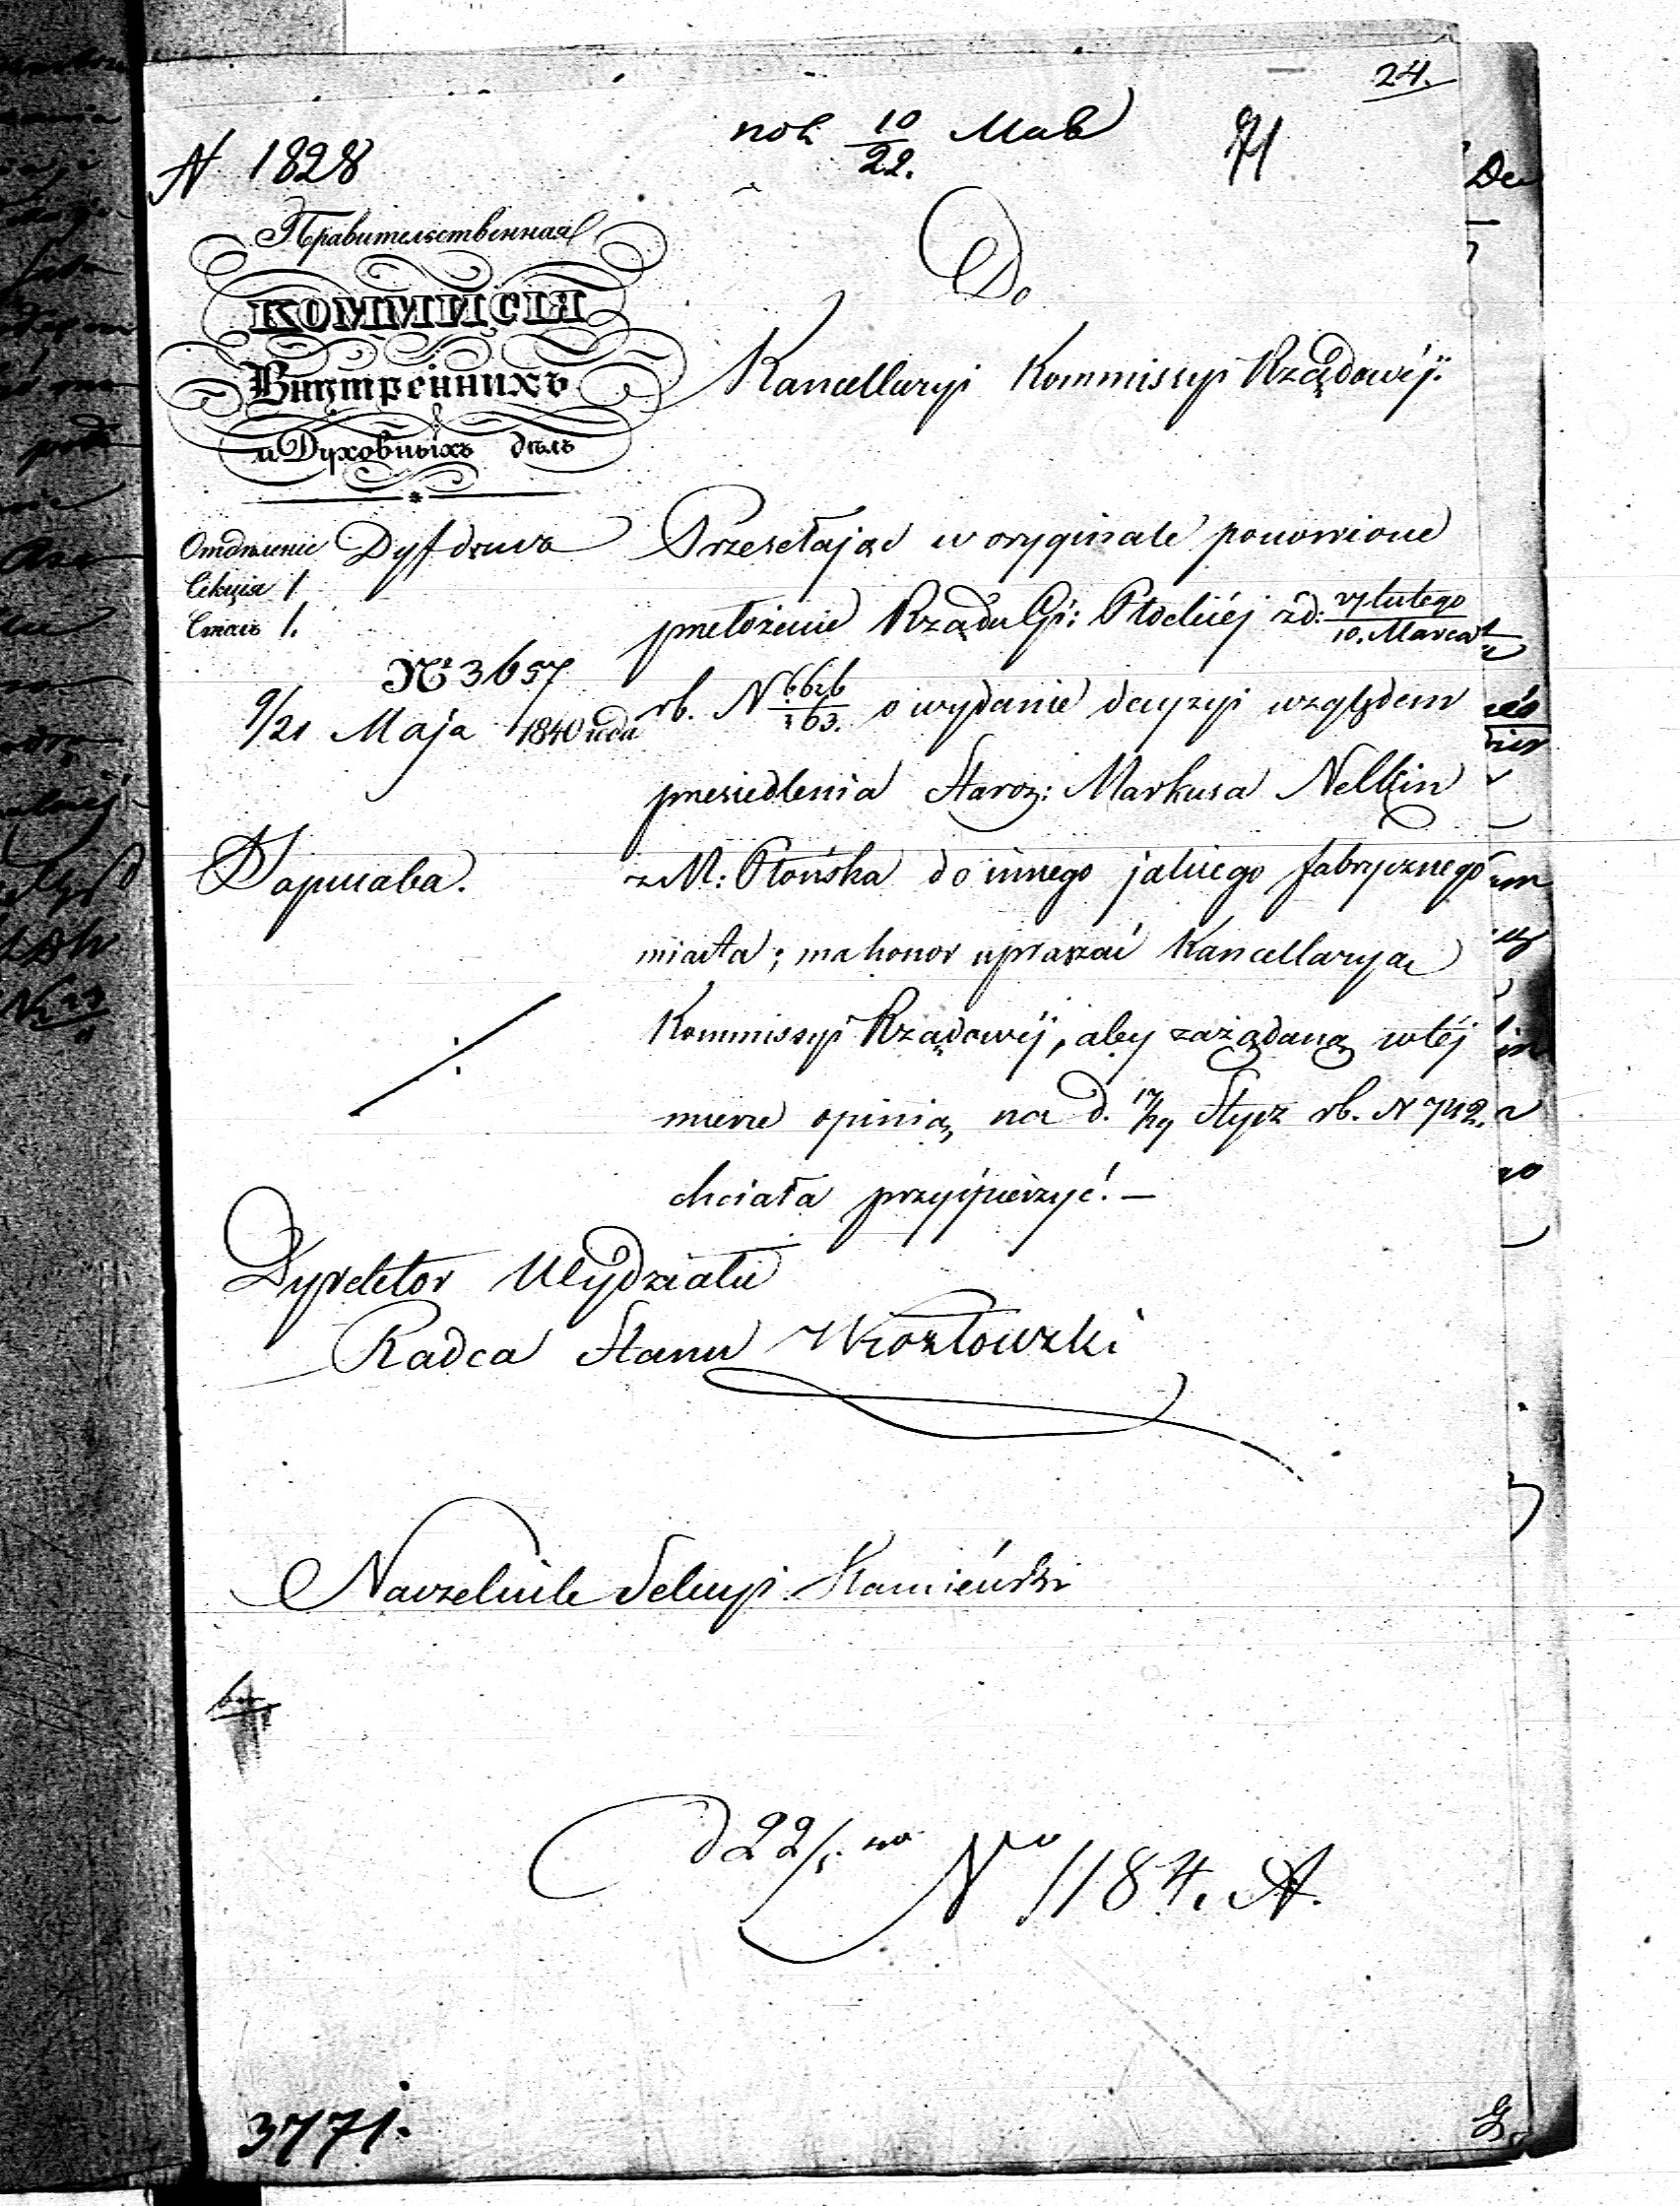 24.
N. 1828
10
22. Мая
71
Правительственная
КОММИСІЯ
Внутреннихъ
и Духовныхъ дѣлъ
Do
Kancellaryi Kommissyi Rządowéj.
Отдѣленіе
Секція 1
Столъ 1.
№ 3657
9/21 Maja 1840 года
Варшава.
Przesełając w oryginale ponowione
przełożenie Rządu Gi: Płockiéj z d: 27 lutego
10. Marca
rb. N 6626
363. o wydanie decyzyi względem
przesiedlenia Staroz: Markusa Nelkin
z M: Płońska do innego jakiego fabrycznego
miasta; ma honor upraszać Kancellaryą
Kommissyi Rządowéj, aby zażądaną w téj
mierze opinią na d. 17/29 Stycz rb. N 742.
chciała przyśpieszyć. —
Dyrektor Wydziału
Radca Stanu Kozłowski
Naczelnik Sekcyi Kamieński
d 22/5 No 1184. A.
3771.